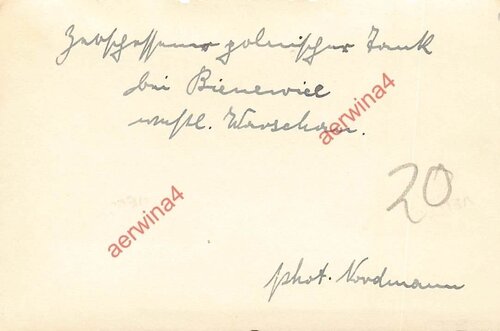 Zerschossener polnischer Tank
bei Bieniewiec
westl. Warschau.
20
phot. Nordmann
aerwina4
aerwina4